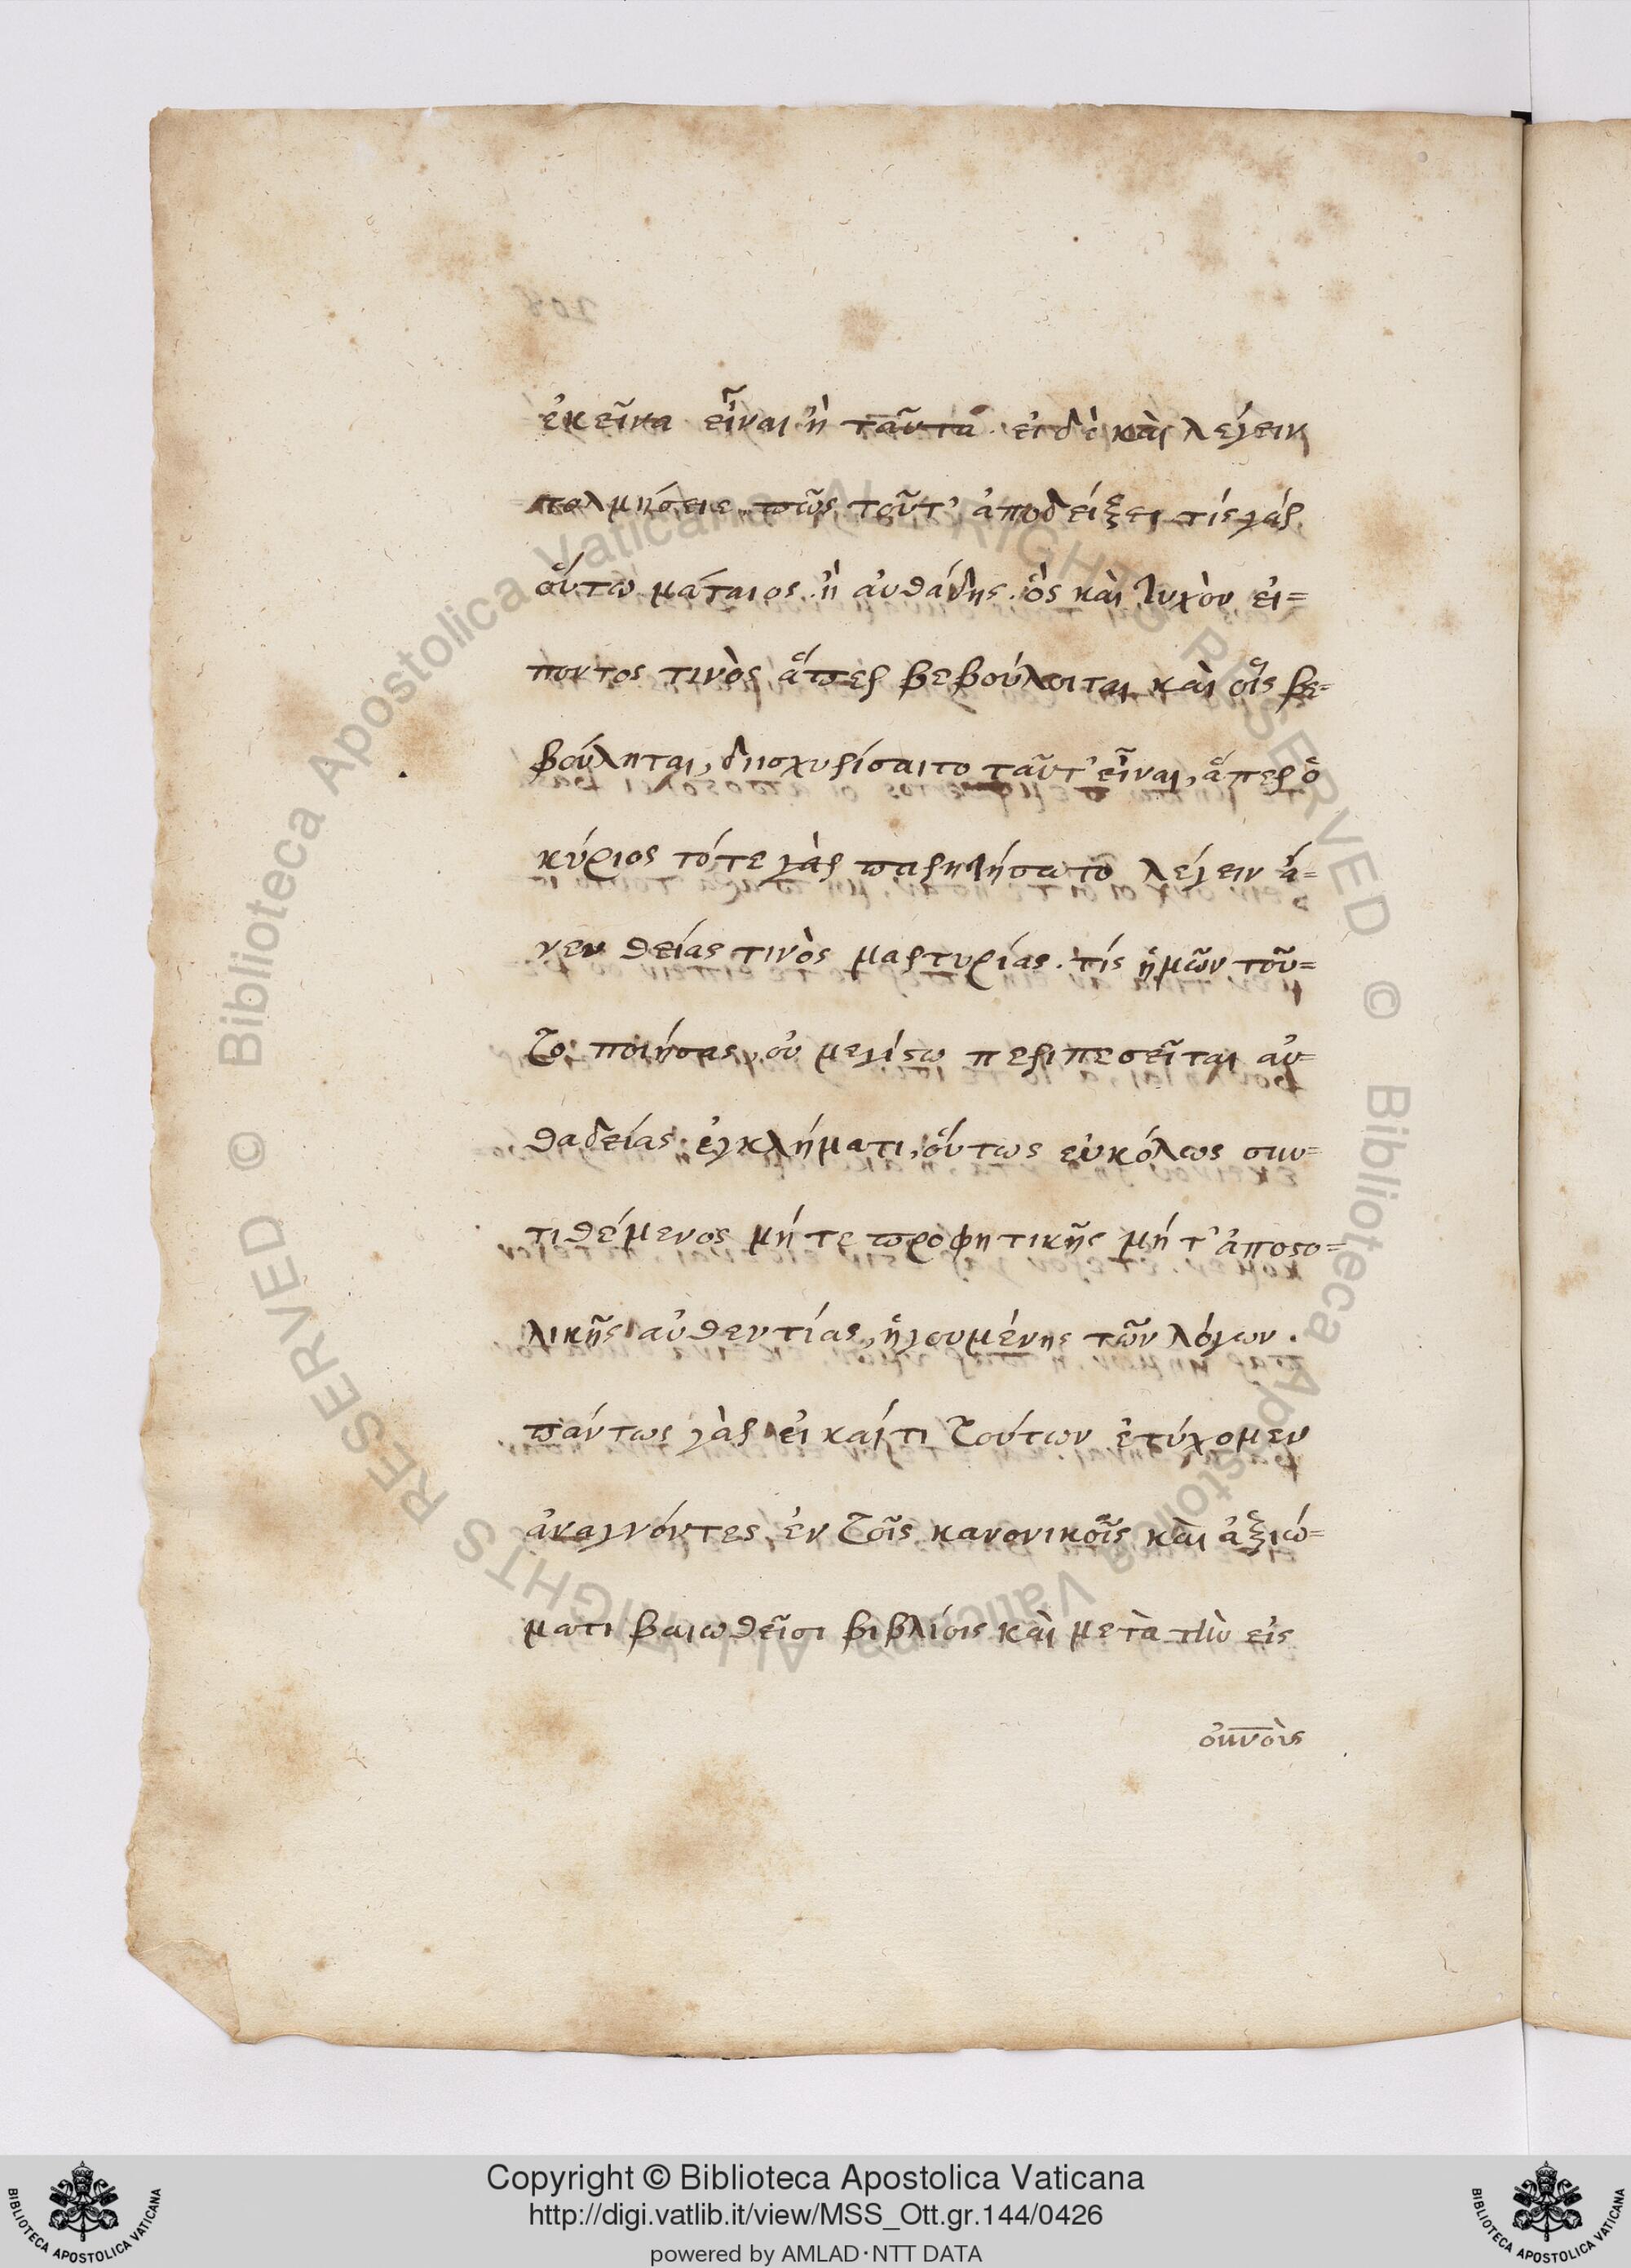 ἐκεῖνα εἶναι ἢ ταῦτα. εἰ δὲ καὶ λέγειν
τολμήσειε, πῶς τοῦτ' ἀποδείξει τίς γάρ
οὕτω μάταιος. ἢ αὐθάδης. ὃς καὶ τυχὸν εἰ=
ποντος τινὸς ἅπερ βεβούλοιται καὶ οἷς βε=
βούληται, διισχυρίσαιτο ταῦτ' εἶναι, ἅπερ ὁ
κύριος τότε γὰρ παρῃτήσατο λέγειν ἄ=
νευ θείας τινὸς μαρτυρίας. τίς ἡμῶν τοῦ=
το ποιήσας, οὐ μεγίστῳ περιπεσεῖται αὐ=
θαδείας ἐγκλήματι, οὕτως εὐκόλως συν=
τιθέμενος μήτε προφητικῆς μήτ' ἀποστο=
λικῆς αὐθεντίας, ἡγουμένης τῶν λόγων.
πάντως γὰρ εἰ καί τι τούτων ἐτύχομεν
ἀναγνόντες ἐν τοῖς κανονικοῖς καὶ ἀξιώ=
ματι βαιωθεῖσι βιβλίοις καὶ μετὰ τὴν εἰς
οὐνοὺς
208
Copyright © Biblioteca Apostolica Vaticana
http://digi.vatlib.it/view/MSS_Ott.gr.144/0426
powered by AMLAD・NTT DATA
BIBLIOTECA APOSTOLICA VATICANA
BIBLIOTECA APOSTOLICA VATICANA
© Biblioteca Apostolica Vaticana ALL RIGHTS RESERVED
© Biblioteca Apostolica Vaticana ALL RIGHTS RESERVED